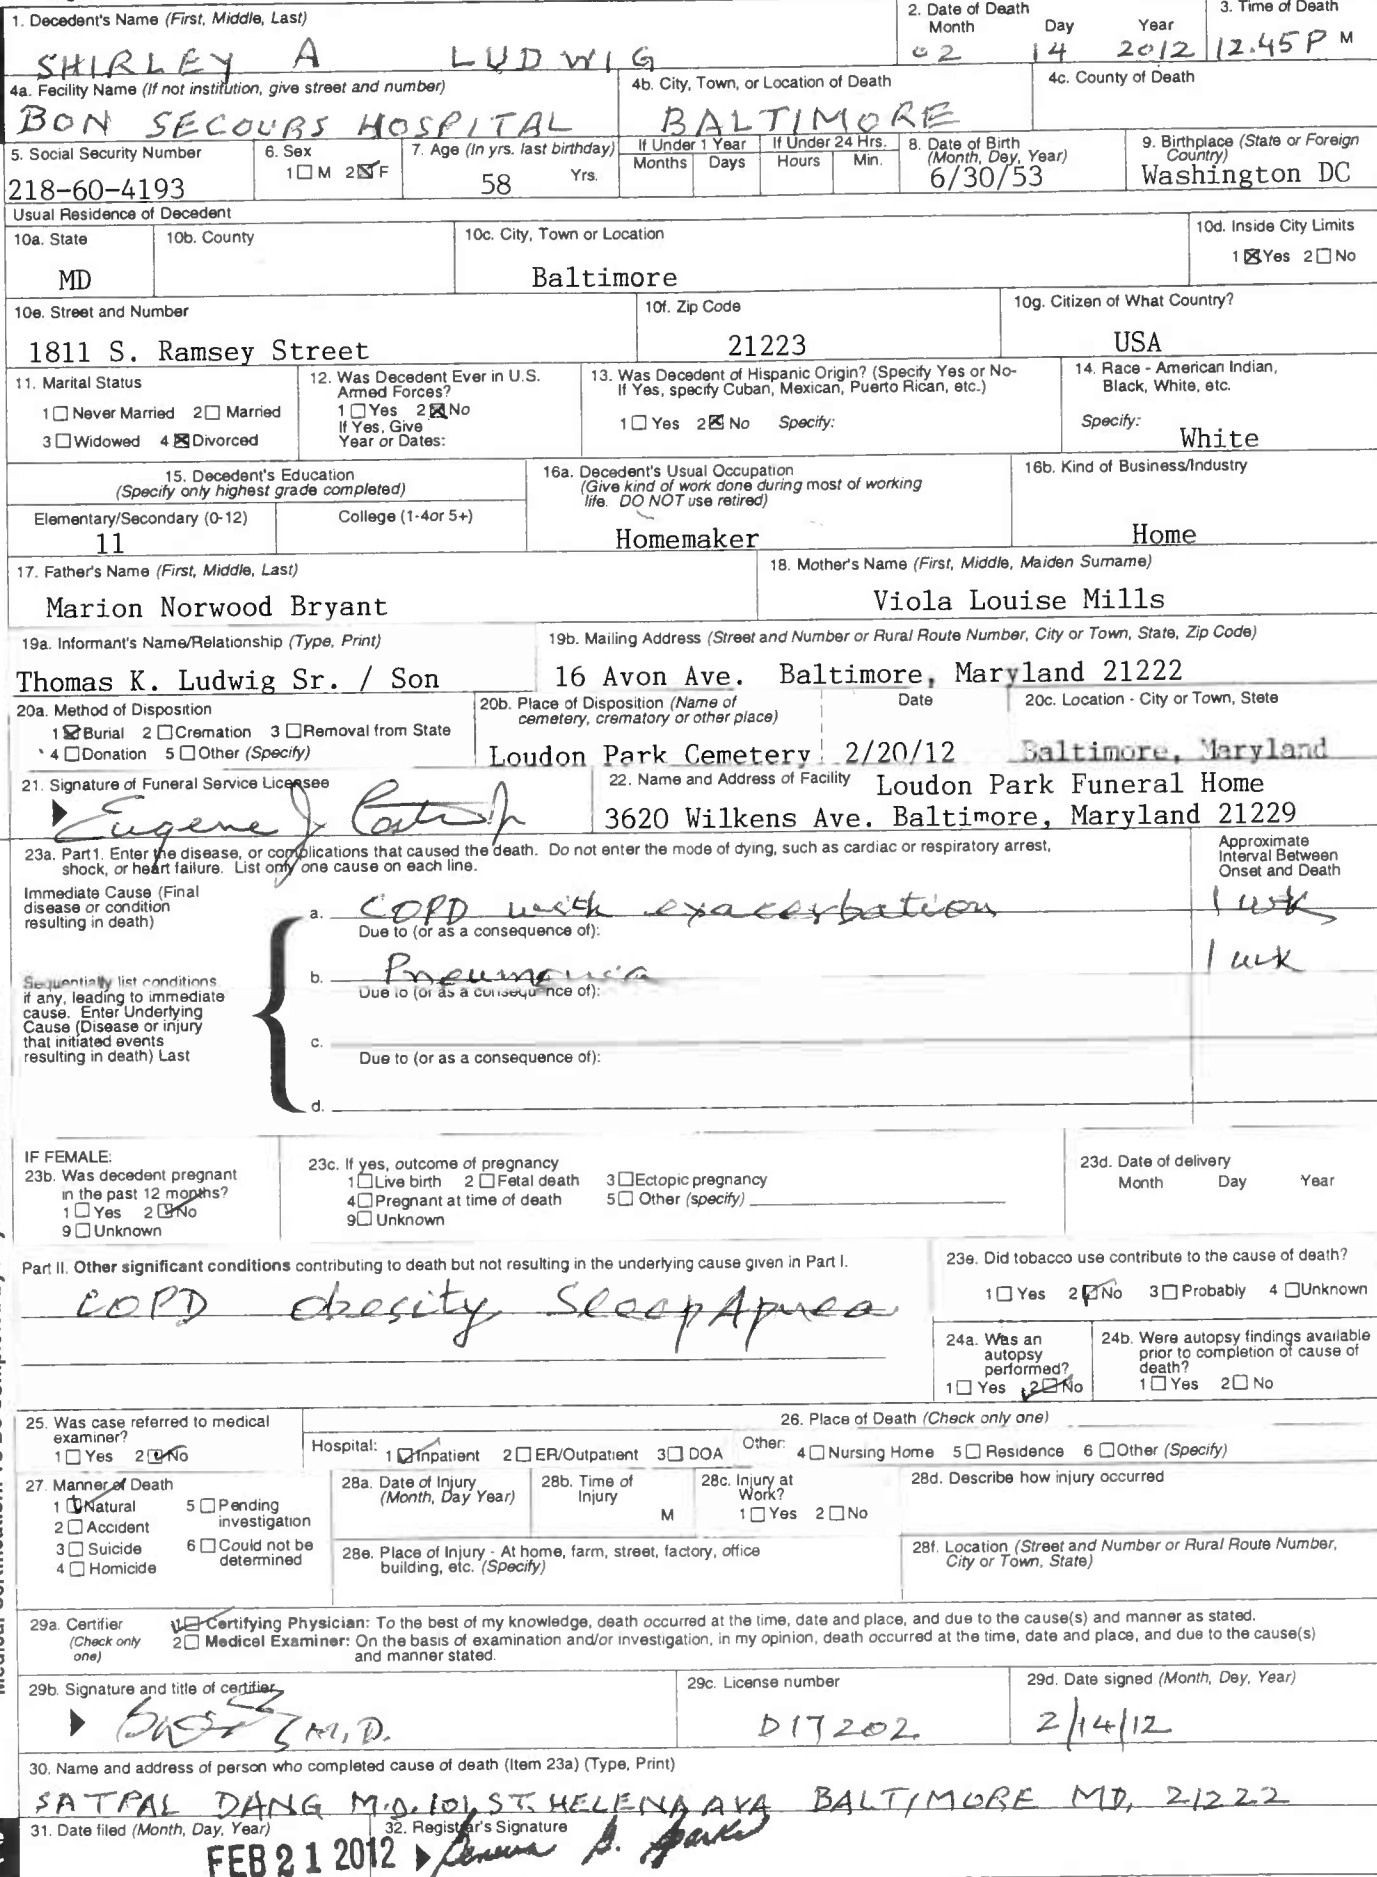 1. Decedent's Name (First, Middle, Last)
SHIRLEY A LUDWIG
2. Date of Death
Month Day Year
02 14 2012
3. Time of Death
12.45 P M
4a. Fecility Name (If not institution, give street and number)
BON SECOURS HOSPITAL
4b. City, Town, or Location of Death
BALTIMORE
4c. County of Death
5. Social Security Number
218-60-4193
6. Sex
1 M 2 F
7. Age (In yrs. last birthday)
58 Yrs.
If Under 1 Year
Months Days
If Under 24 Hrs.
Hours Min.
8. Date of Birth
(Month, Dey, Year)
6/30/53
9. Birthplace (State or Foreign
Country)
Washington DC
Usual Residence of Decedent
10a. State
MD
10b. County
10c. City, Town or Location
Baltimore
10d. Inside City Limits
1 Yes 2 No
10e. Street and Number
1811 S. Ramsey Street
10f. Zip Code
21223
10g. Citizen of What Country?
USA
11. Marital Status
1 Never Married 2 Married
3 Widowed 4 Divorced
12. Was Decedent Ever in U.S.
Armed Forces?
1 Yes 2 No
If Yes, Give
Year or Dates:
13. Was Decedent of Hispanic Origin? (Specify Yes or No-
If Yes, specify Cuban, Mexican, Puerto Rican, etc.)
1 Yes 2 No Specify:
14. Race - American Indian,
Black, White, etc.
Specify:
White
15. Decedent's Education
(Specify only highest grade completed)
Elementary/Secondary (0-12)
11
College (1-4or 5+)
16a. Decedent's Usual Occupation
(Give kind of work done during most of working
life. DO NOT use retired)
Homemaker
16b. Kind of Business/Industry
Home
17. Father's Name (First, Middle, Last)
Marion Norwood Bryant
18. Mother's Name (First, Middle, Maiden Surname)
Viola Louise Mills
19a. Informant's Name/Relationship (Type, Print)
Thomas K. Ludwig Sr. / Son
19b. Mailing Address (Street and Number or Rural Route Number, City or Town, State, Zip Code)
16 Avon Ave. Baltimore, Maryland 21222
20a. Method of Disposition
1 Burial 2 Cremation 3 Removal from State
4 Donation 5 Other (Specify)
20b. Place of Disposition (Name of
cemetery, crematory or other place)
Loudon Park Cemetery
Date
2/20/12
20c. Location - City or Town, Stete
Baltimore, Maryland
21. Signature of Funeral Service Licensee
Eugene J
22. Name and Address of Facility Loudon Park Funeral Home
3620 Wilkens Ave. Baltimore, Maryland 21229
23a. Part1. Enter the disease, or complications that caused the death. Do not enter the mode of dying, such as cardiac or respiratory arrest,
shock, or heart failure. List only one cause on each line.
Approximate
Interval Between
Onset and Death
Immediate Cause (Final
disease or condition
resulting in death)
a. COPD with exacerbation 1 wk
Due to (or as a consequence of):
b. Pneumonia 1 wk
Due to (or as a consequence of):
Sequentially list conditions,
if any, leading to immediate
cause. Enter Underlying
Cause (Disease or injury
that initiated events
resulting in death) Last
c.
Due to (or as a consequence of):
d.
IF FEMALE:
23b. Was decedent pregnant
in the past 12 months?
1 Yes 2 No
9 Unknown
23c. If yes, outcome of pregnancy
1 Live birth 2 Fetal death 3 Ectopic pregnancy
4 Pregnant at time of death 5 Other (specify)
9 Unknown
23d. Date of delivery
Month Day Year
Part II. Other significant conditions contributing to death but not resulting in the underlying cause given in Part I.
COPD obesity Sleep Apnea
23e. Did tobacco use contribute to the cause of death?
1 Yes 2 No 3 Probably 4 Unknown
24a. Was an
autopsy
performed?
1 Yes 2 No
24b. Were autopsy findings available
prior to completion of cause of
death?
1 Yes 2 No
25. Was case referred to medical
examiner?
1 Yes 2 No
26. Place of Death (Check only one)
Hospital: 1 Inpatient 2 ER/Outpatient 3 DOA Other: 4 Nursing Home 5 Residence 6 Other (Specify)
27. Manner of Death
1 Natural 5 Pending
investigation
2 Accident
3 Suicide 6 Could not be
determined
4 Homicide
28a. Date of Injury
(Month, Day Year)
28b. Time of
Injury
M
28c. Injury at
Work?
1 Yes 2 No
28d. Describe how injury occurred
28e. Place of Injury - At home, farm, street, factory, office
building, etc. (Specify)
28f. Location (Street and Number or Rural Route Number,
City or Town, State)
29a. Certifier
(Check only
one)
1 Certifying Physician: To the best of my knowledge, death occurred at the time, date and place, and due to the cause(s) and manner as stated.
2 Medicel Examiner: On the basis of examination and/or investigation, in my opinion, death occurred at the time, date and place, and due to the cause(s)
and manner stated.
29b. Signature and title of certifier
M.D.
29c. License number
D17202
29d. Date signed (Month, Dey, Year)
2/14/12
30. Name and address of person who completed cause of death (Item 23a) (Type, Print)
SATPAL DANG M.D. 101, ST. HELENA AVA BALTIMORE MD, 21222
31. Date filed (Month, Day, Year)
FEB 21 2012
32. Registrar's Signature